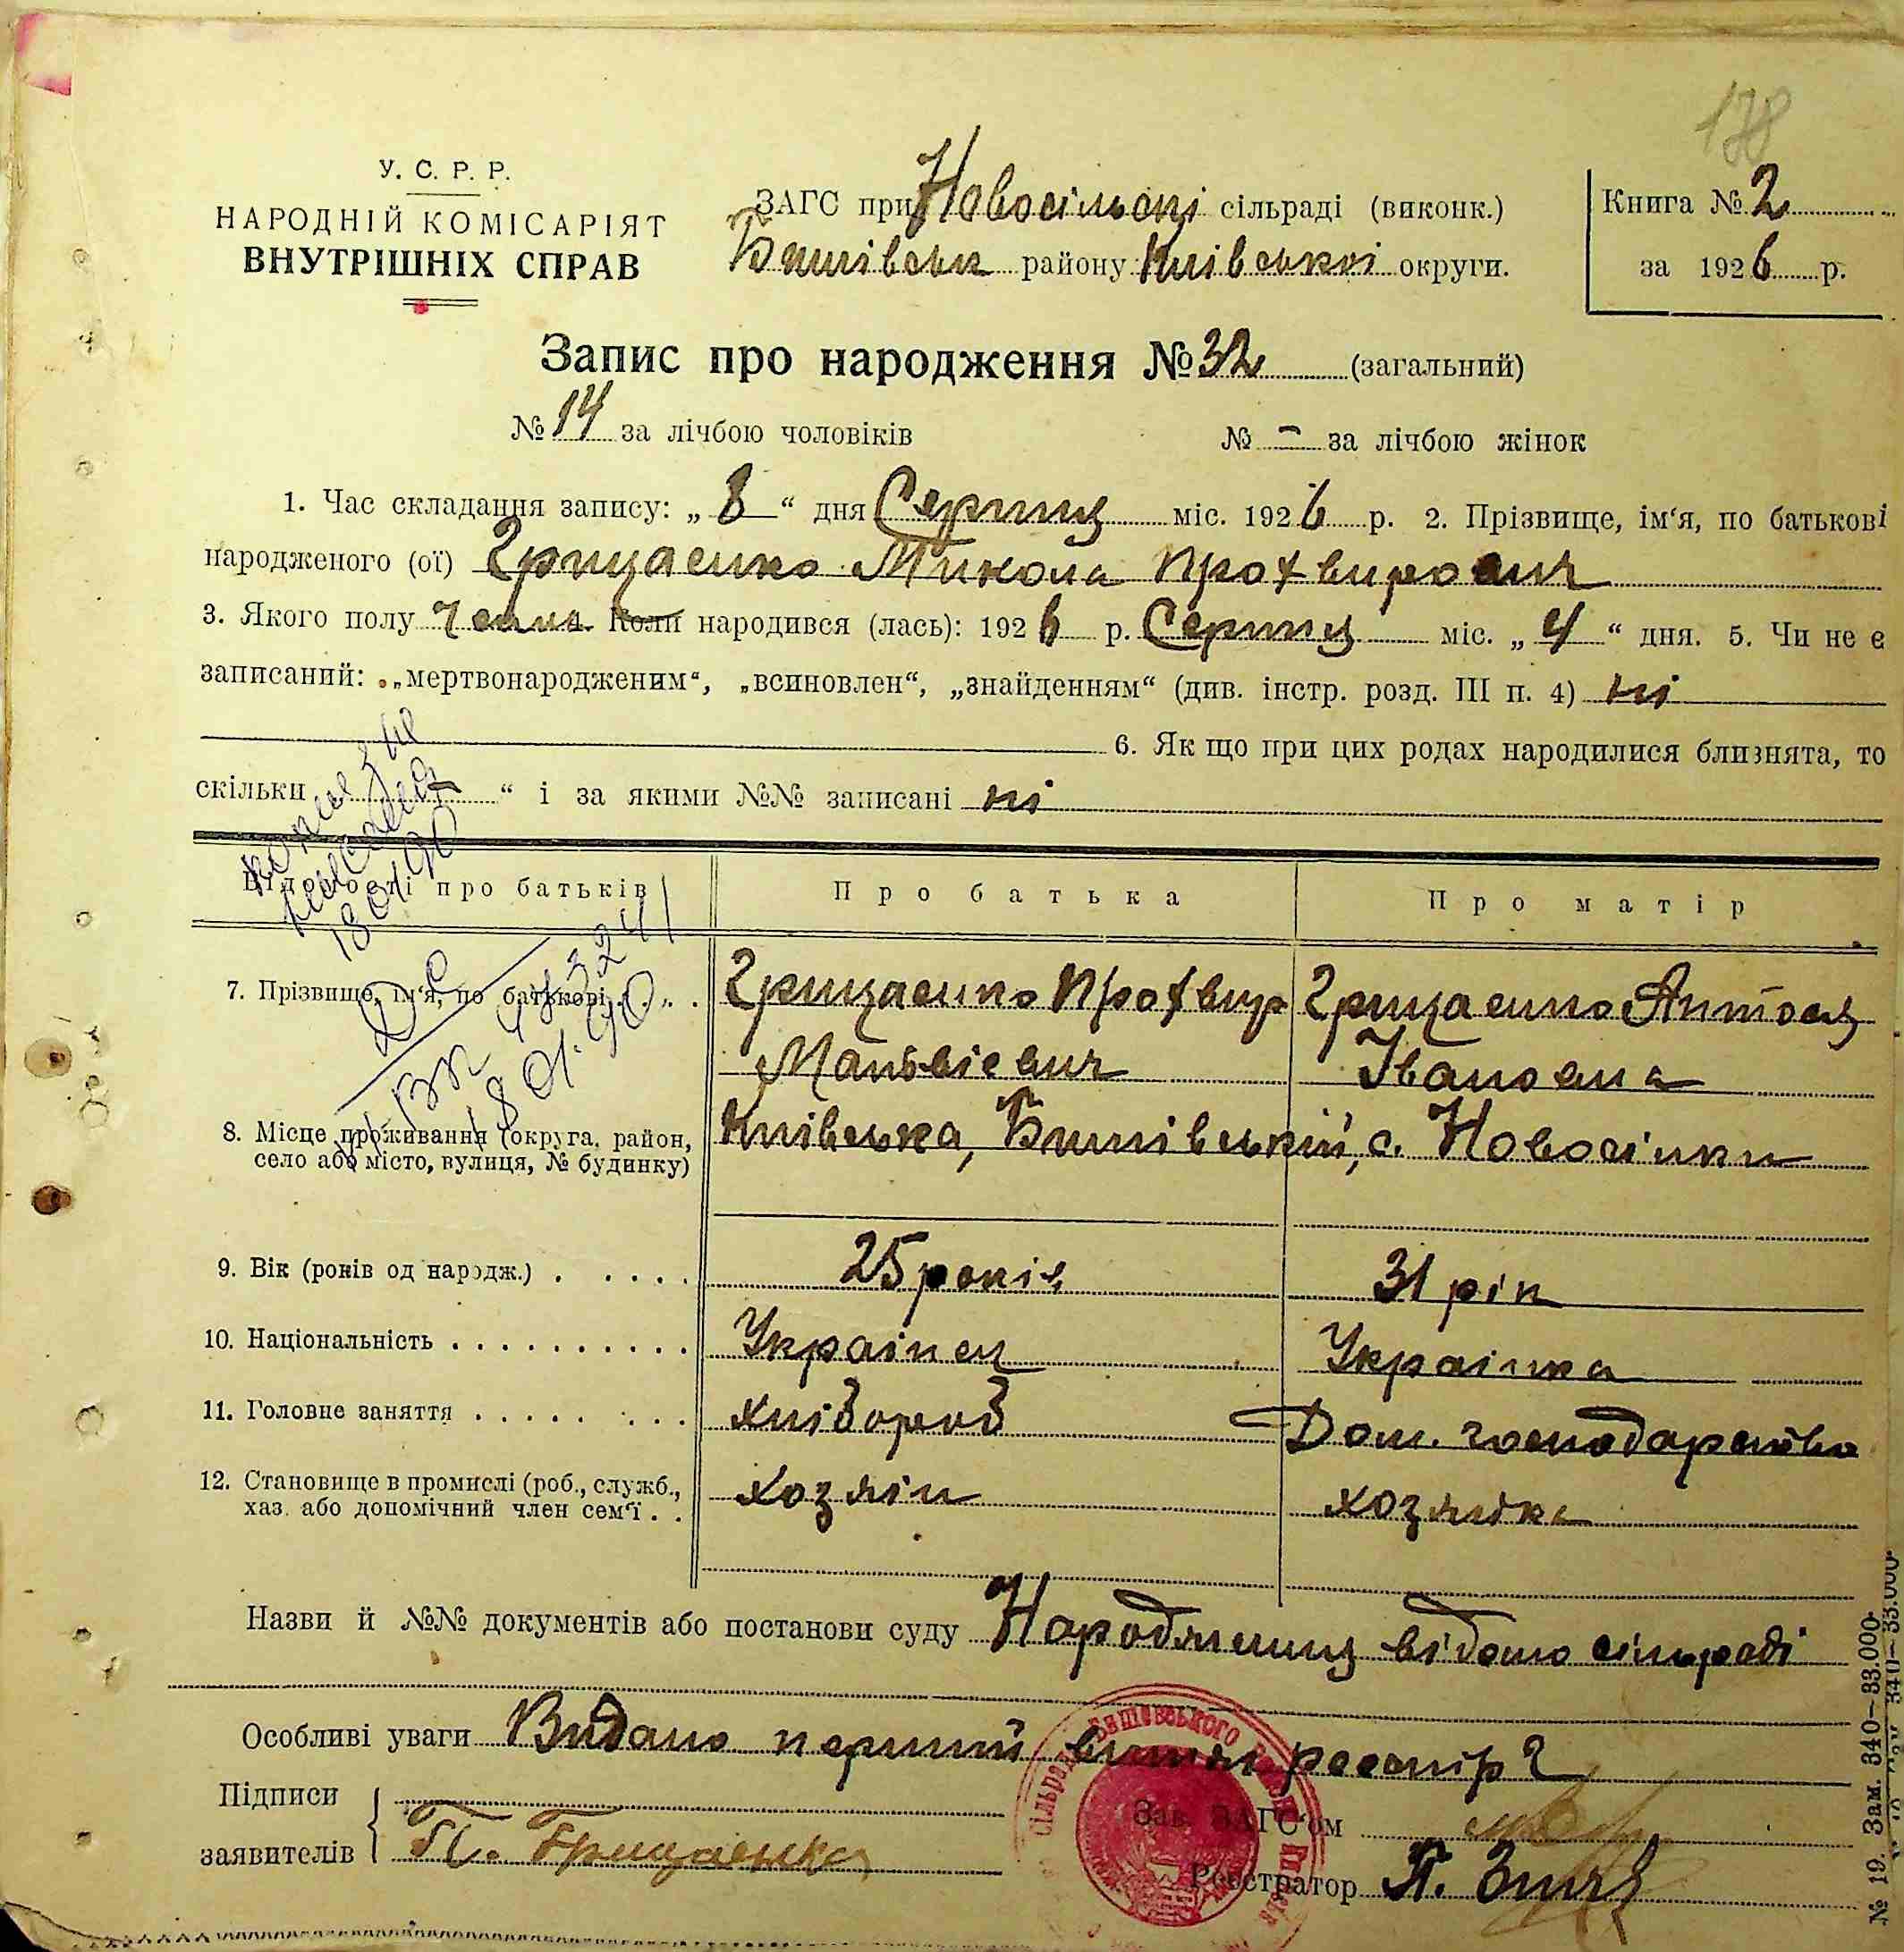 178
У. С. Р. Р.
НАРОДНІЙ КОМІСАРІЯТ
ВНУТРІШНІХ СПРАВ
ЗАГС при Новосільскі сільраді (виконк.)
Бишівськ району Київської округи.
Книга № 2
за 1926 р.
Запис про народження № 32 (загальний)
№ 14 за лічбою чоловіків № - за лічбою жінок
1. Час складання запису: „ 8 “ дня Серпня міс. 1926 р. 2. Прізвище, ім‘я, по батькові
народженого (ої) Грицаенко Микола Профирович
3. Якого полу Чолов. Коли народився (лась): 1926 р. Серпня міс. „ 4 “ дня. 5. Чи не є
записаний: „мертвонародженим“, „всиновлен“, „знайденням“ (див. інстр. розд. III п. 4) ні
6. Як що при цих родах народилися близнята, то
скільки “ і за якими №№ записані ні
Відомості про батьків Про батька Про матір
18 01 90
7. Прізвище, ім‘я, по батькові . . . . Грицаенко Профвир Грицаенко Антося
Матвіевич Івановна
18 01. 90
8. Місце проживання (округа, район, Київська, Бишівський, с. Новосілки
село або місто, вулиця, № будинку)
9. Вік (років од народж.) . . . . . 25 років 31 рік
10. Національність . . . . . . . . . . Украінец Украінка
11. Головне заняття . . . . . . . . . хлібороб Дом. господарство
12. Становище в промислі (роб., служб., хозяін хозяйка
хаз. або допомічний член сем‘ї . .
Назви й №№ документів або постанови суду Народження відомо сільраді
Особливі уваги Видано перший витяг реєстр
Підписи
заявителів П. Грицаенко
Зав. ЗАГС‘ом
Реєстратор П.
№ 19. Зам. 340–33.000.